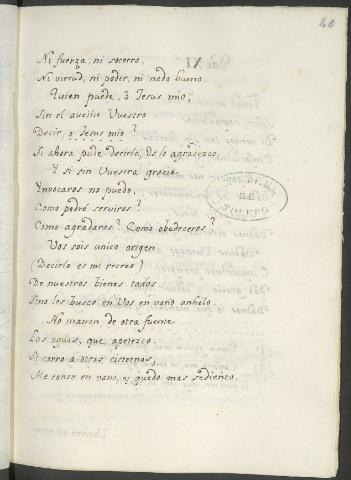 20
Ni fuerza, ni socorro,
Ni virtud, ni poder, ni nada bueno.
Quien puede, ô Jesus mio,
Sin el auxilio Vuestro
Decir, o Jesus mio?
Si ahora pude decirlo, Os lo agradezco.
Y si sin Vuestra gracia
Ynvocaros no puedo,
Como podré serviros?
Como agradaros? Como obedeceros?
Vos sois unico origen
(Decirlo es mi recreo)
De nuestros bienes todos
Sino los busco en Vos en vano anhelo.
No manan de otra fuente
Las aguas, que apetezco.
Si corro a otras cisternas,
Me canso en vano, y quedo mas sediento.
DE
TOLEDO